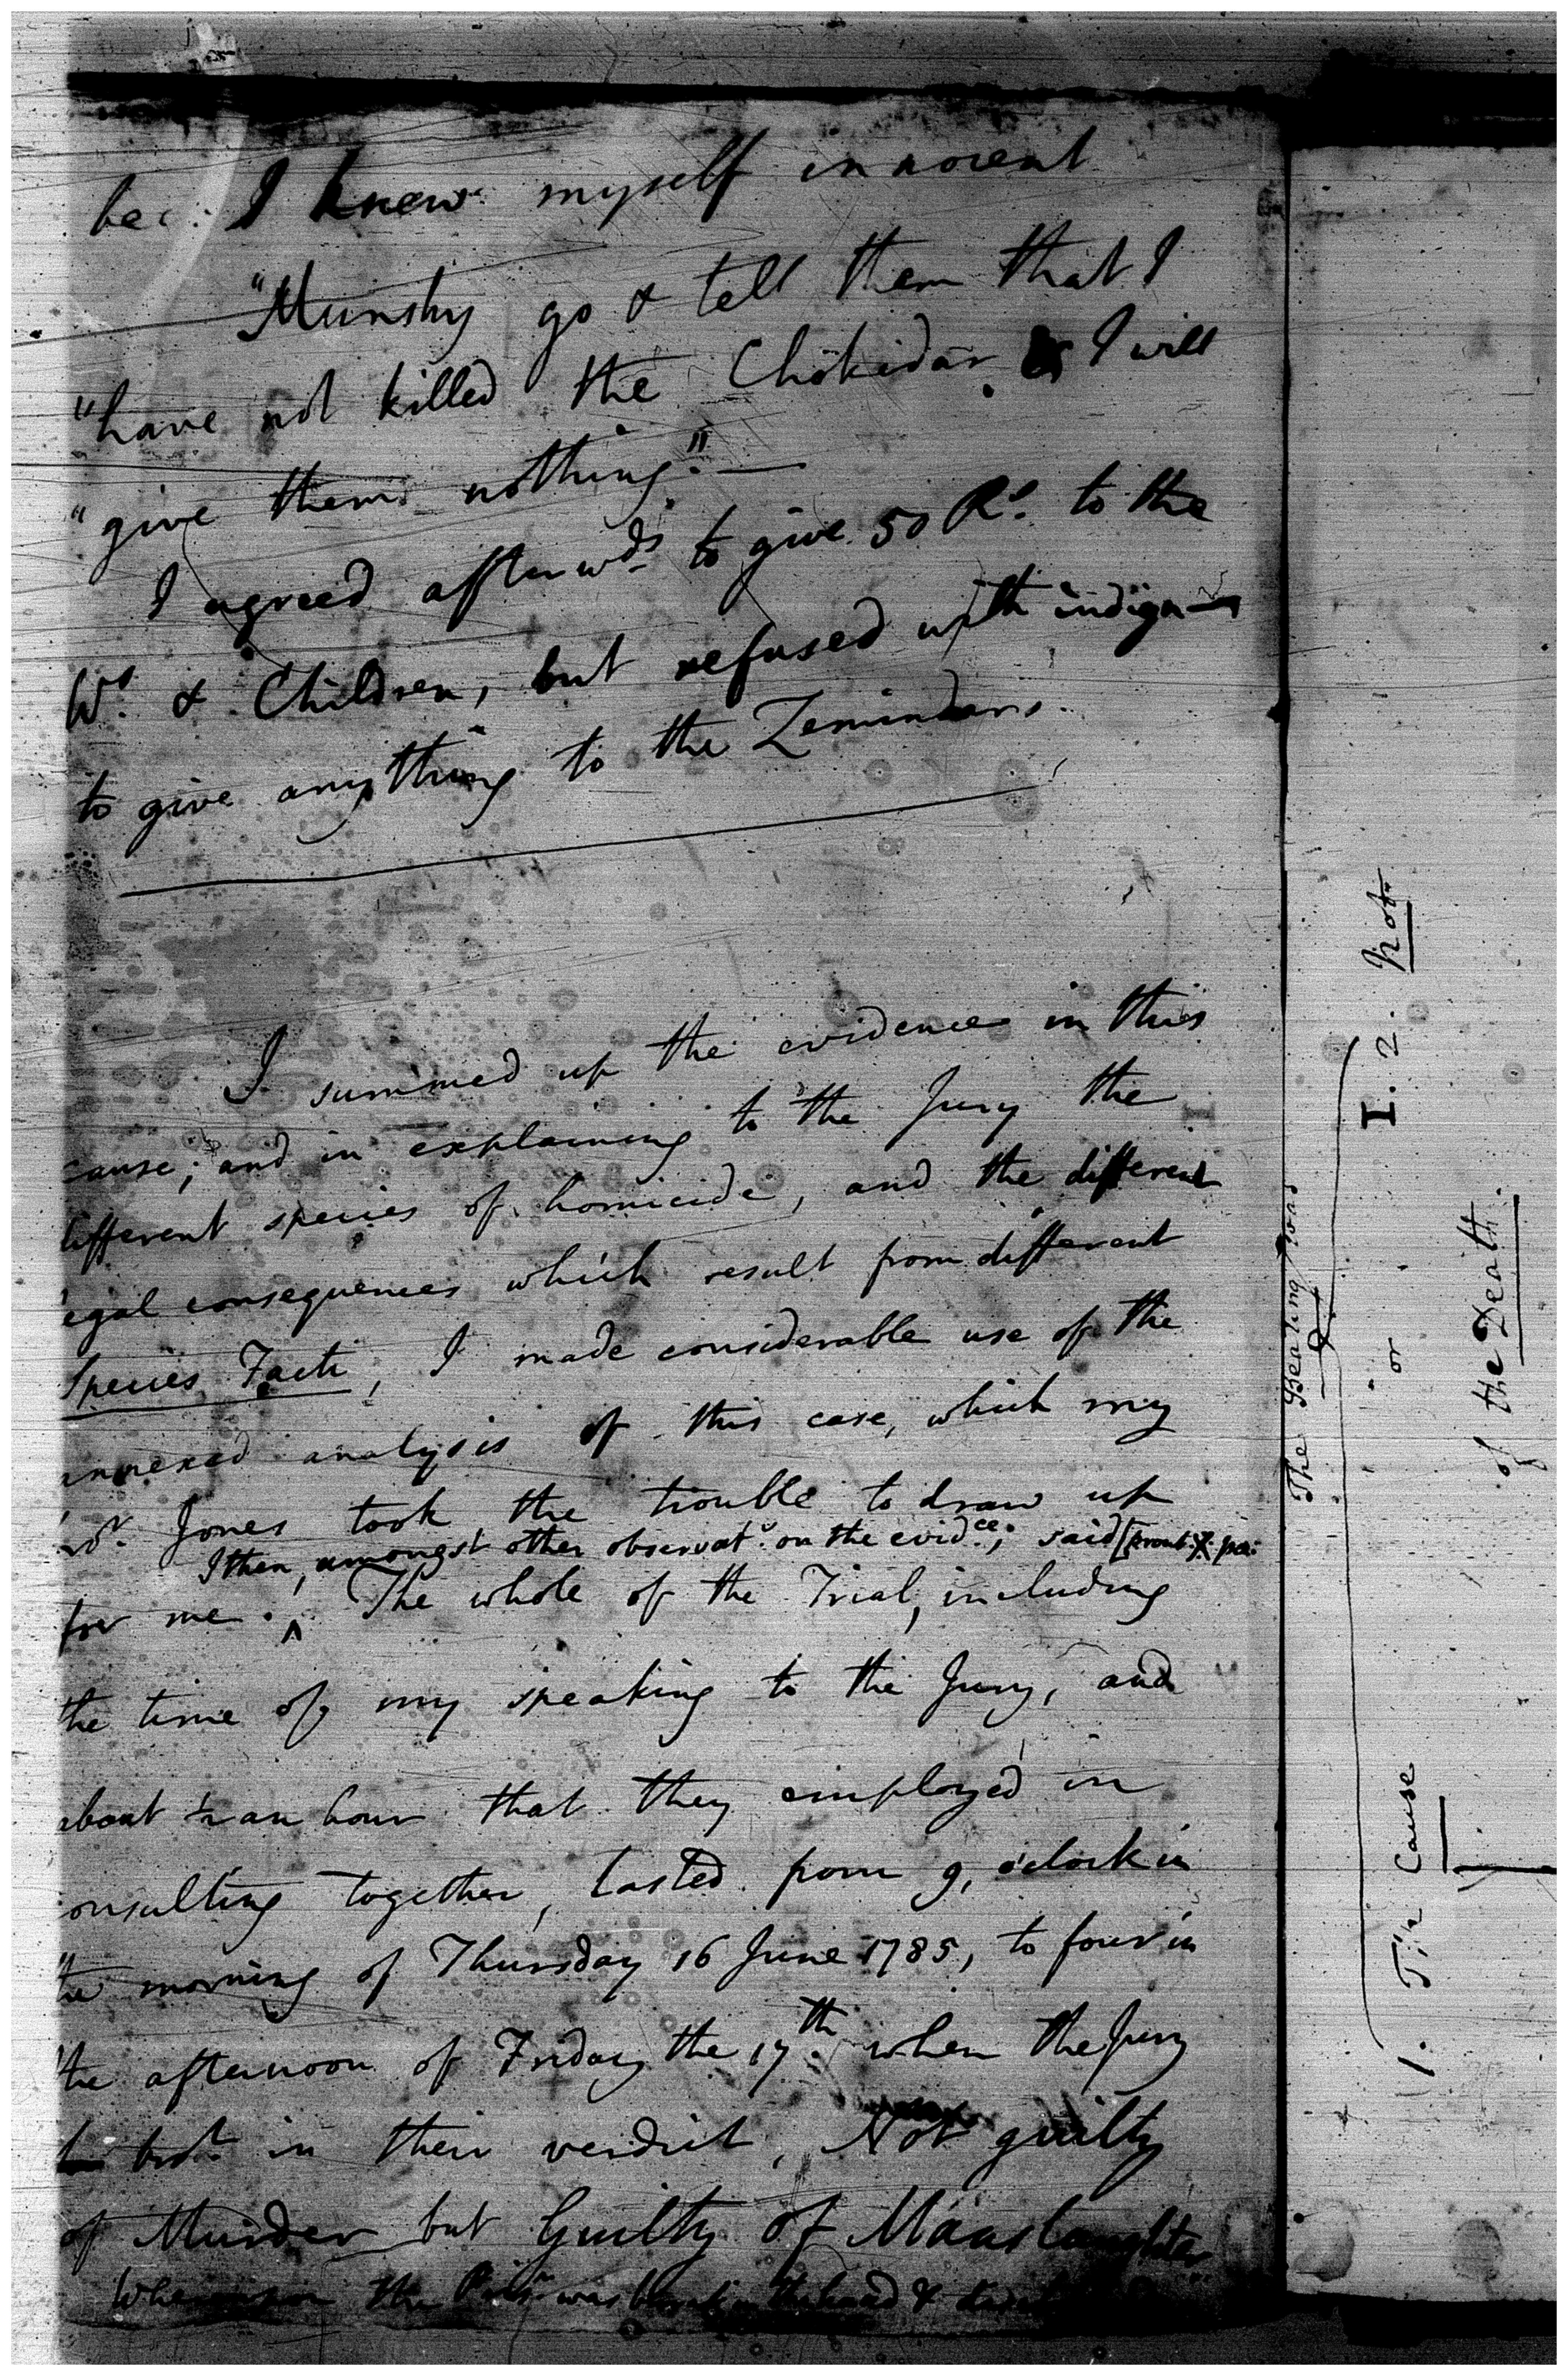 bec: I knew myself innocent
"Munshy go & tell them that I
"have not killed the Chôkidâr & I will
"give them nothing."—
I agreed afterwds to give 50 Rs. to the
Ws. & Children, but refused with indign—n
to give anything to the Zemindars.
I summed up the evidence in this
cause; and in explaining to the Jury the
different species of homicide, and the different
legal consequences which result from different
Species Facti, I made considerable use of the
annexed analysis of this case, which my
Jones took the trouble to draw up
I then, amongst other observatns. on the evidce.; said
for me. ^ The whole of the Trial, including
the time of my speaking to the Jury, and
about ½ an hour that they employed in
consulting together, lasted from 9, o'clock in
the morning of Thursday 16 June 1785, to four in
the afternoon of Friday the 17th. when the Jury
brot. in their verdict, Not guilty
of Murder but Guilty of Manslaughter
Whereupon the was in the hand &
The Beating was
I. 2. not
or
1. The Cause
of the Death.